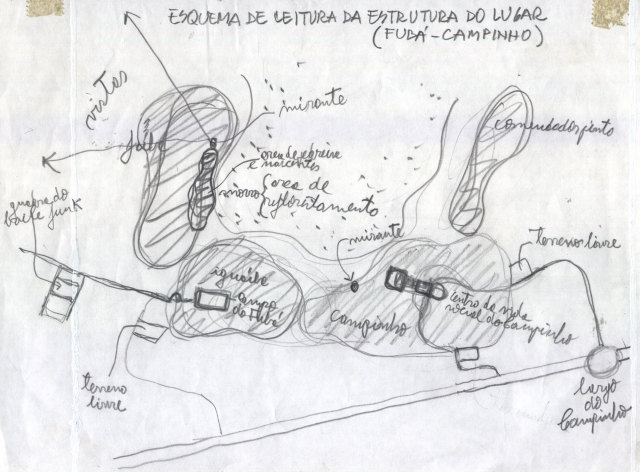 ESQUEMA DE LEITURA DA ESTRUTURA DO LUGAR
(FUBÁ-CAMPINHO)
vistas
mirante
fubá
comendador pinto
area de
nascentes
morro
area de
reflorestamento
quadra do
baile funk
mirante
terreno livre
iguaíba
campo
do Fubá
campinho
centro da vida
social do Campinho
terreno
livre
largo
do
Campinho